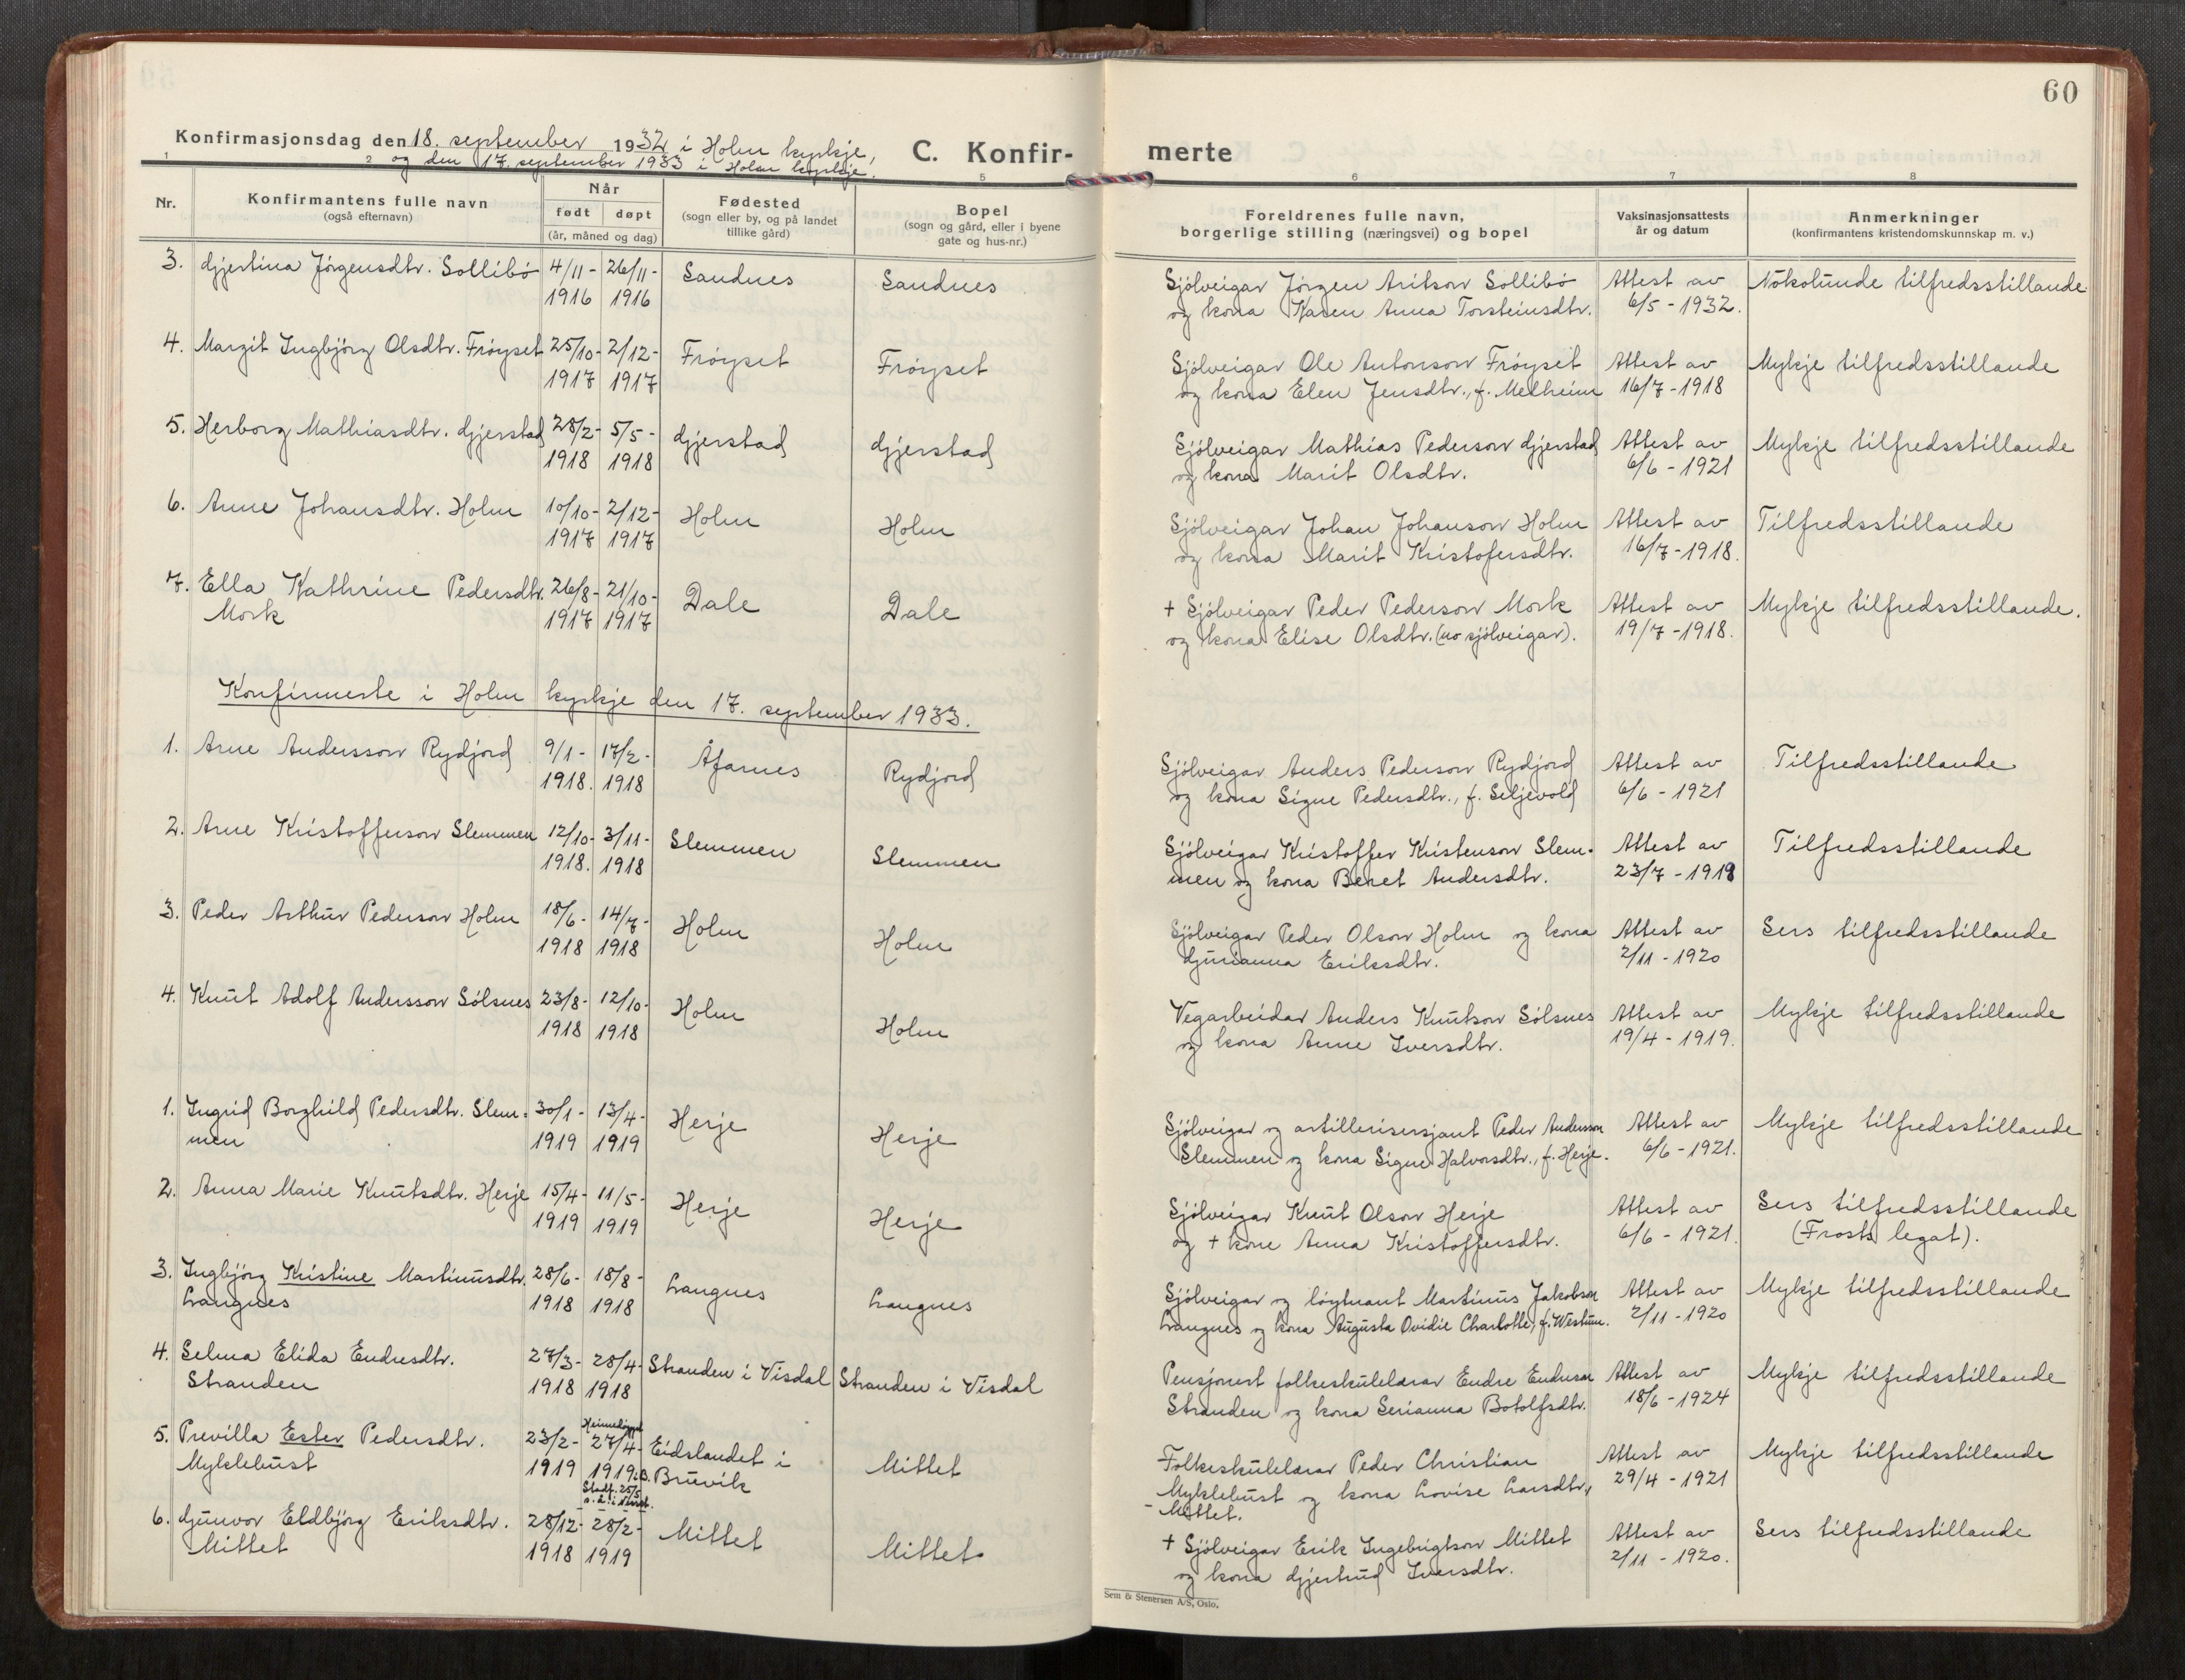 60
Konfirmasjonsdag den 18. september 1932 i Holm kyrkje,
og den 17. september 1933 i Holm kyrkje.
C. Konfir- merte
1 2 5 6 7 8
Nr.
Konfirmantens fulle navn
(også efternavn)
Når
født døpt
(år, måned og dag)
Fødested
(sogn eller by, og på landet
tillike gård)
Bopel
(sogn og gård, eller i byene
gate og hus-nr.)
Foreldrenes fulle navn,
borgerlige stilling (næringsvei) og bopel
Vaksinasjonsattests
år og datum
Anmerkninger
(konfirmantens kristendomskunnskap m. v.)
3. Gjertina Jørgensdtr. Sollibø 4/11- 26/11- Sandnes Sandnes Sjölveigar Jørgen Aritson Sollibø Attest av Nokolunde tilfredsstillande
1916 1916 og kona Karen Anna Torsteinsdtr. 6/5 - 1932.
4. Margit Ingbjörg Olsdtr. Fröyset 25/10- 2/12- Fröyset Fröyset Sjölveigar Ole Antonson Fröyset Attest av Mykje tilfredsstillande
1917 1917 og kona Elen Jensdtr., f. Melheim 16/7 - 1918
5. Herborg Mathiasdtr. Gjerstad 28/2- 5/5- Gjerstad Gjerstad Sjölveigar Mathias Pederson Gjerstad Attest av Mykje tilfredsstillande
1918 1918 og kona Marit Olsdtr. 6/6 - 1921
6. Anne Johansdtr. Holm 10/10- 2/12- Holm Holm Sjölveigar Johan Johanson Holm Attest av Tilfredsstillande
1917 1917 og kona Marit Kristofersdtr. 16/7 - 1918.
7. Ella Kathrine Pedersdtr. 26/8- 21/10- Dale Dale + Sjölveigar Peder Pederson Mork Attest av Mykje tilfredsstillande.
Mork 1917 1917 og kona Elise Olsdtr. (no sjölveigar). 19/7 - 1918.
Konfirmerte i Holm kyrkje den 17. september 1933.
1. Arne Andersson Rydjord 9/1- 17/2- Åfarnes Rydjord Sjölveigar Anders Pederson Rydjord Attest av Tilfredsstillande
1918. 1918 og kona Signe Pedersdtr., f. Seljevold 6/6 - 1921
2. Arne Kristofferson Slemmen 12/10- 3/11- Slemmen Slemmen Sjölveigar Kristoffer Kristenson Slem- Attest av Tilfredsstillande
1918. 1918 men og kona Beret Andersdtr. 23/7 - 1919
3. Peder Arthur Pederson Holm 18/6- 14/7- Holm Holm Sjölveigar Peder Olson Holm og kona Attest av Sers tilfredsstillande
1918 1918 Gurianna Eriksdtr. 2/11 - 1920
4. Knut Adolf Andersson Sölsnes 23/8- 12/10- Holm Holm Vegarbeidar Anders Knutson Sölsnes Attest av Mykje tilfredsstillande
1918 1918 og kona Anne Iversdtr. 19/4 - 1919.
1. Ingrid Borghild Pedersdtr. Slem- 30/1- 13/4- Herje Herje Sjölveigar og artillerisersjant Peder Andersson Attest av Mykje tilfredsstillande
men 1919 1919 Slemmen og kona Signe Halvorsdtr., f. Herje. 6/6 - 1921.
2. Anna Marie Knutsdtr. Herje 15/4- 11/5- Herje Herje Sjölveigar Knut Olson Herje Attest av Sers tilfredsstillande
1919 1919 og + kone Anna Kristoffersdtr. 6/6 - 1921. (Frosts legat).
3. Ingbjörg Kristine Martinusdtr. 28/6- 18/8- Langnes Langnes Sjölveigar og löytnant Martinus Jakobson Attest av Mykje tilfredsstillande
Langnes 1918 1918 Langnes og kona Augusta Ovidie Charlotte, f. Westum. 2/11 - 1920
4. Selma Elida Endresdtr. 27/3- 28/4- Stranden i Visdal Stranden i Visdal Pensjonert folkeskulelærar Endre Endreson Attest av Mykje tilfredsstillande
Stranden 1918 1918 Stranden og kona Serianna Botolfsdtr. 18/6 - 1924
5. Previlla Ester Pedersdtr. 23/2- 27/4- Eidslandet i Mittet Folkeskulelærar Peder Christian Attest av Mykje tilfredsstillande
Myklebust 1919 1919 Bruvik Myklebust og kona Lovise Larsdtr., 29/4 - 1921
- Mittet.
6. Gunvor Eldbjörg Eriksdtr. 28/12- 28/2- Mittet Mittet + Sjölveigar Erik Ingebrigtson Mittet Attest av Sers tilfredsstillande
Mittet 1918 1919 og kona Gjertrud Iversdtr. 2/11 - 1920.
Sem & Stenersen A/S, Oslo.